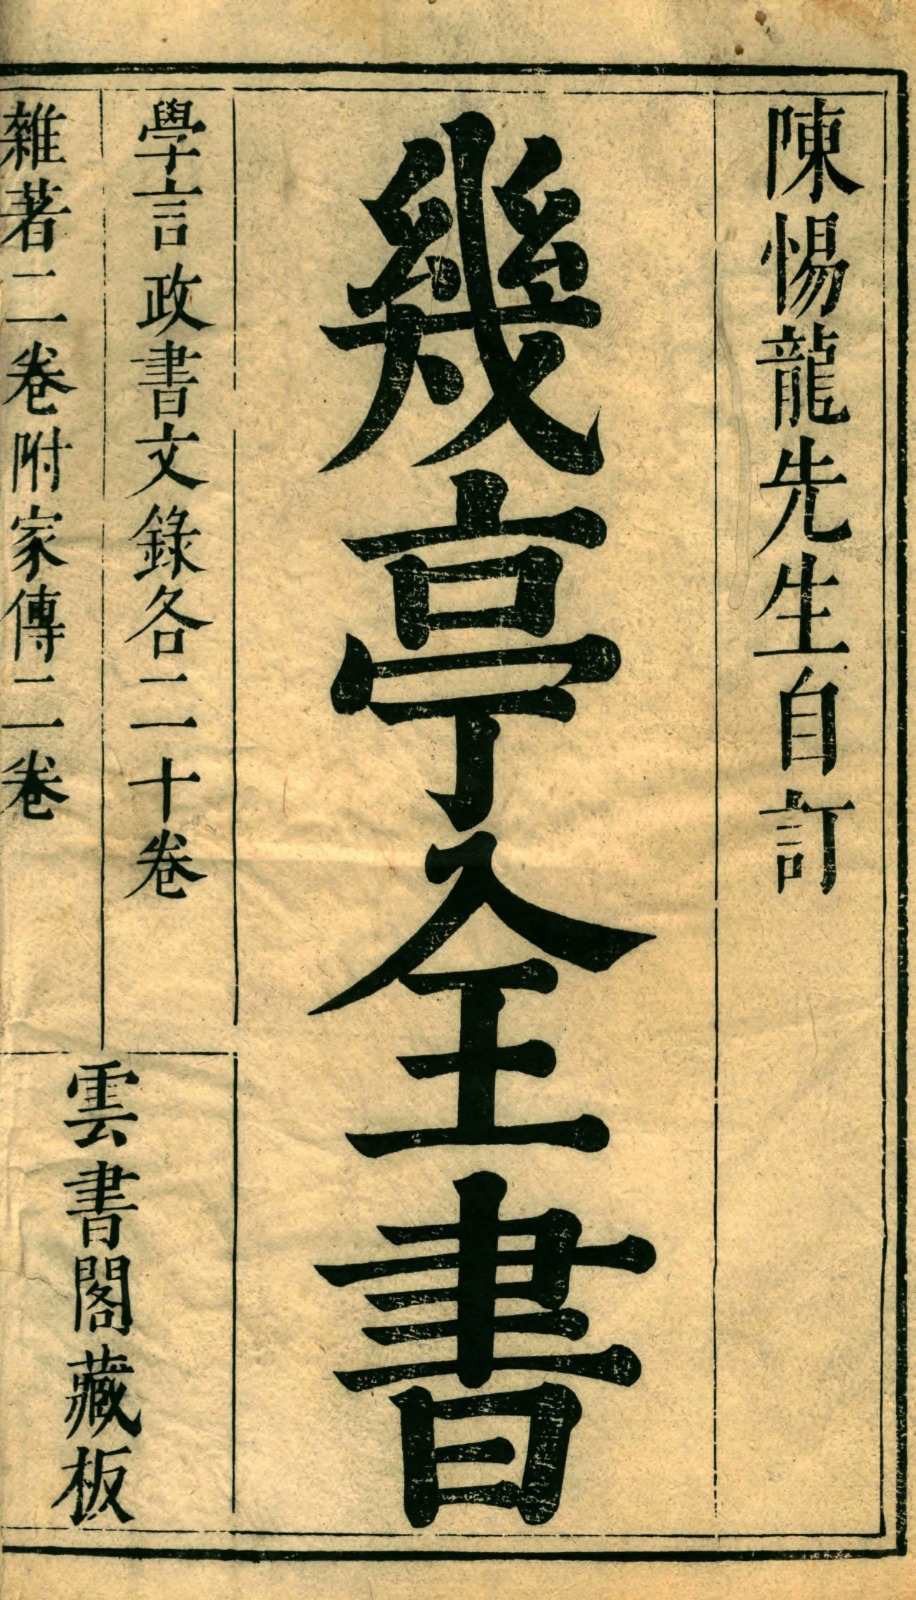 陳惕龍先生自訂
幾亭全書
學言政書文錄各二十卷
雜著二卷附家傳二卷
雲書閣藏板